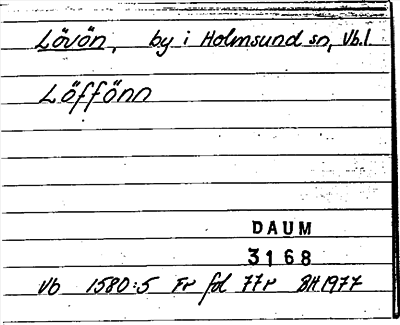 Lövön, by i Holmsund sn, Vb.l.
Löffönn
DAUM
3168
Vb 1580:5 Fr fol 77r BH 1977